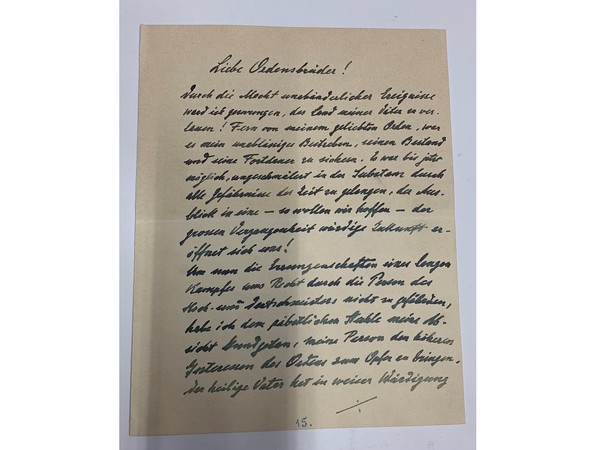 Liebe Ordensbrüder!
Durch die Macht unabänderlicher Ereignisse
werd ich gezwungen, das Land meiner Väter zu ver-
lassen! Fern von meinem geliebten Orden, war
es mein unablässiges Bestreben, seinen Bestand
und seine Fortdauer zu sichern. Es war bis jetzt
möglich, ungeschmälert in der Substanz durch
alle Gefährnisse der Zeit zu gelangen, der Aus-
blick in eine – so wollen wir hoffen – der
grossen Vergangenheit würdige Zukunft er-
öffnet sich uns!
Um nun die Errungenschaften eines langen
Kampfes ums Recht durch die Person des
Hoch- und Deutschmeisters nicht zu gefährden,
habe ich dem päbstlichen Stuhle meine Ab-
sicht kundgetan, meine Person den höheren
Interessen des Ordens zum Opfer zu bringen.
Der heilige Vater hat in weiser Würdigung
15.